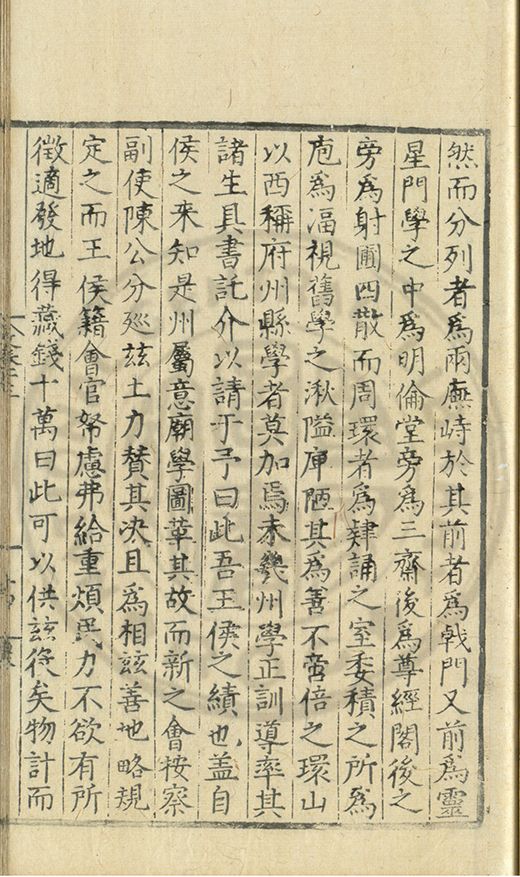 然而分列者為兩廡峙於其前者為戟門又前為靈
星門學之中為明倫堂旁為三齋後為尊經閣後之
旁為射圃四散而周環者為肄誦之室委積之所為
庖為湢視舊學之湫隘庳陋其為善不啻倍之環山
以西稱府州縣學者莫加焉未幾州學正訓導率其
諸生具書託介以請于予曰此吾王侯之績也盖自
侯之来知是州屬意廟學圖革其故而新之會按察
副使陳公分廵玆土力賛其决且為相玆善地略規
定之而王侯籍會官帑慮弗給重煩民力不欲有所
徵適發地得藏錢十萬曰此可以供玆役矣物計而